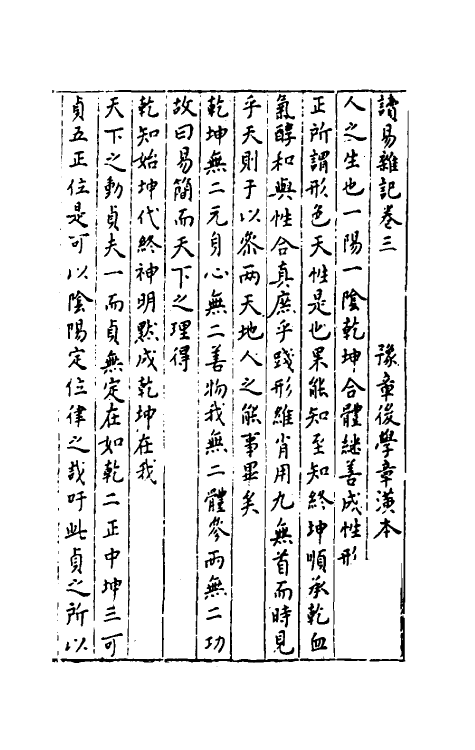 讀易雜記卷三　豫章後學章潢本
人之生也一陽一陰乾坤合體繼善成性形
正所謂形色天性是也果能知至知終坤順承乾血
氣醇和與性合真庶乎踐形維肖用九無首而時見
乎天則于以參兩天地人之能事畢矣
乾坤無二元身心無二善物我無二體參兩無二功
故曰易簡而天下之理得
乾知始坤代終神明黙成乾坤在我
天下之動貞夫一而貞無定在如乾二正中坤三可
貞五正位是可以陰陽定位律之哉吁此貞之所以